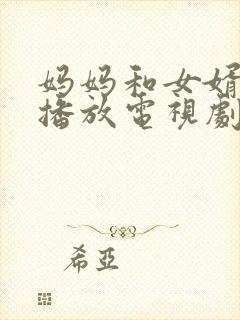 妈妈和女婿
播放電視劇
希亞